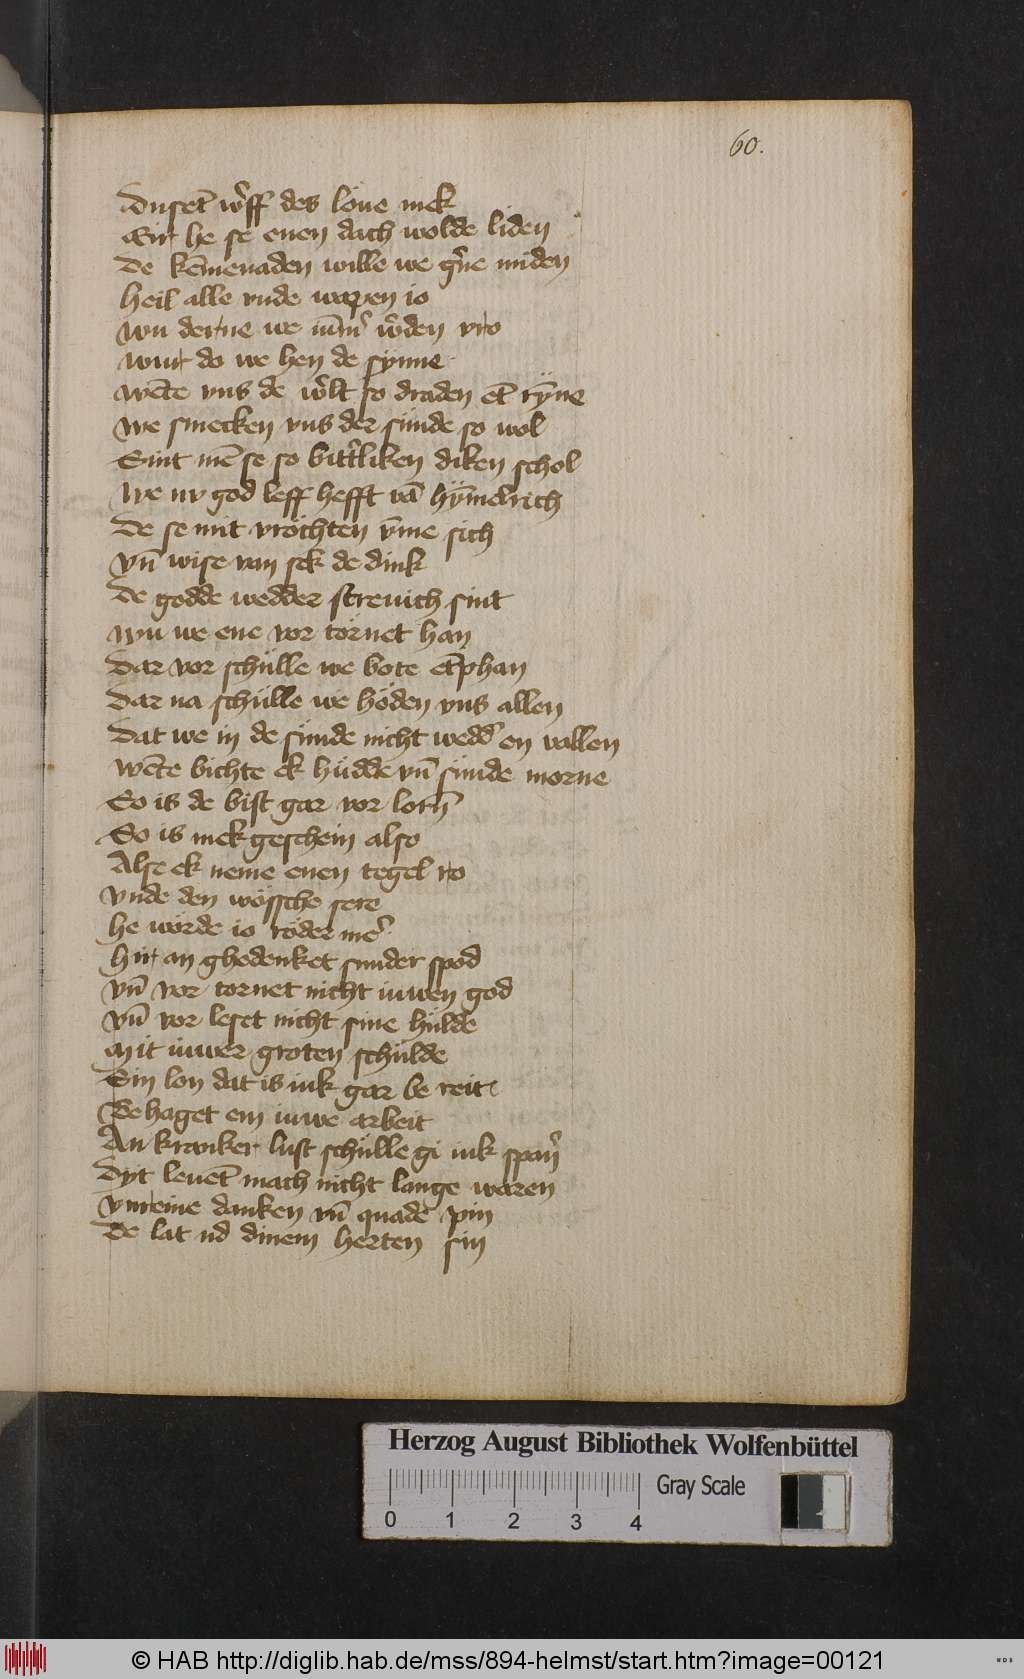 60.
Duset̄ w̄ff des löue mek
Eir he se enen dach wolde liden
De kēmenaden wille we ḡne miden
Heil alle vnde wapen io
Wu derne we nūm̄ w̄den vro
Wur do we hen de synne
Wēte vns de w̄lt so draden et̄ rÿne
We smecken vns der sünde so wol
Sint mē se so bitt̄liken diken schol
We nv god leff hefft vn̄ hÿmelrich
De se mit vröchten v̄me sich
Vn̄ wise van sek de dink
De godde wedder streuich sint
Wu we ene vor törnet han
Dar vor schülle we bote et̄phan
Dar na schülle we höden vns allen
Dat we in de sünde nicht wedd̄ en vallen
Wēte bichte ek hüdde vn̄ sünde morne
So is de bist gar vor lorn̄
So is mek geschein also
Alse ek neme enen tegel ro
Vnde den wössche sere
He wörde io röder mē
Hir an ghedenket sunder spod
Vn̄ vor tornet nicht iuwen god
Vn̄ vor leset nicht sine hülde
Mit iuwer groten schülde
Sin lon dat is iuk gar be reit
Behaget em iuwe arbeit
An kranker lust schülle gi iuk span̄
Dyt leuet̄ mach nicht lange waren
Vnreine danken vn̄ quade pin
De lat ud dinem herten sin
Herzog August Bibliothek Wolfenbüttel
Gray Scale
0 1 2 3 4
© HAB http://diglib.hab.de/mss/894-helmst/start.htm?image=00121